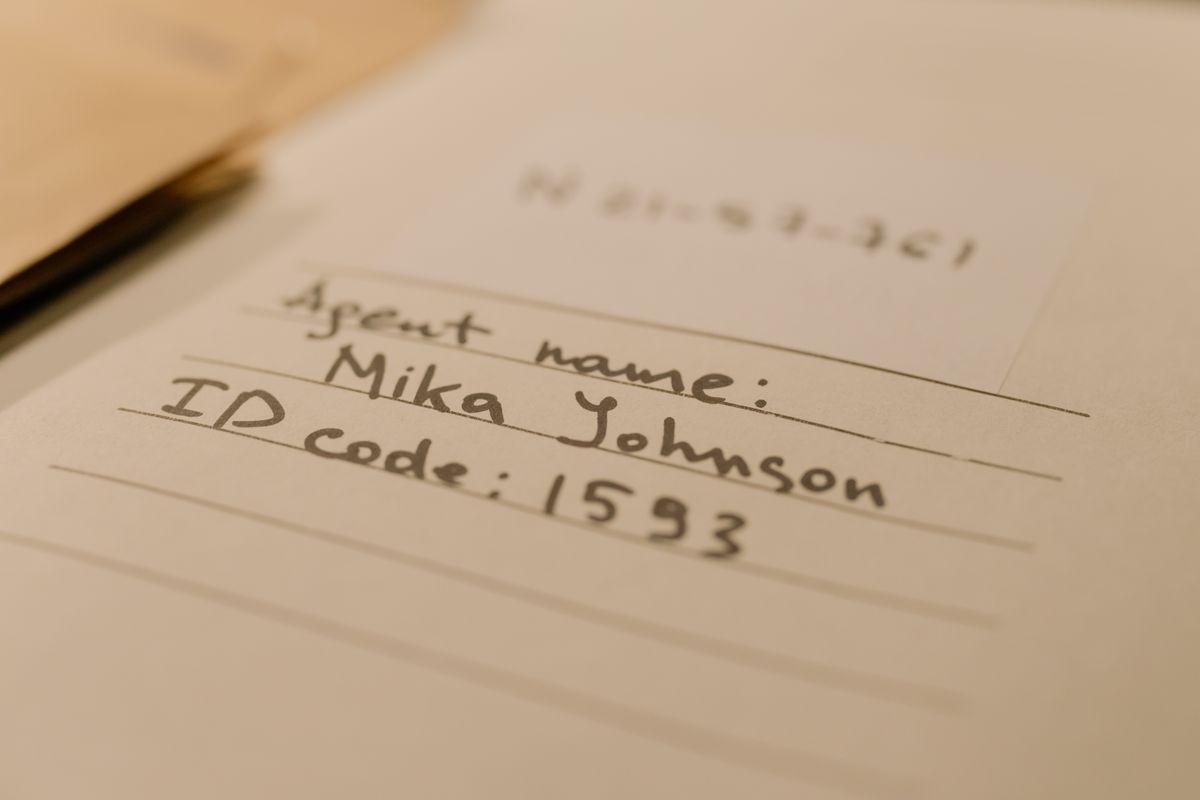 N 21-87-761
Agent name:
Mika Johnson
ID code: 1593